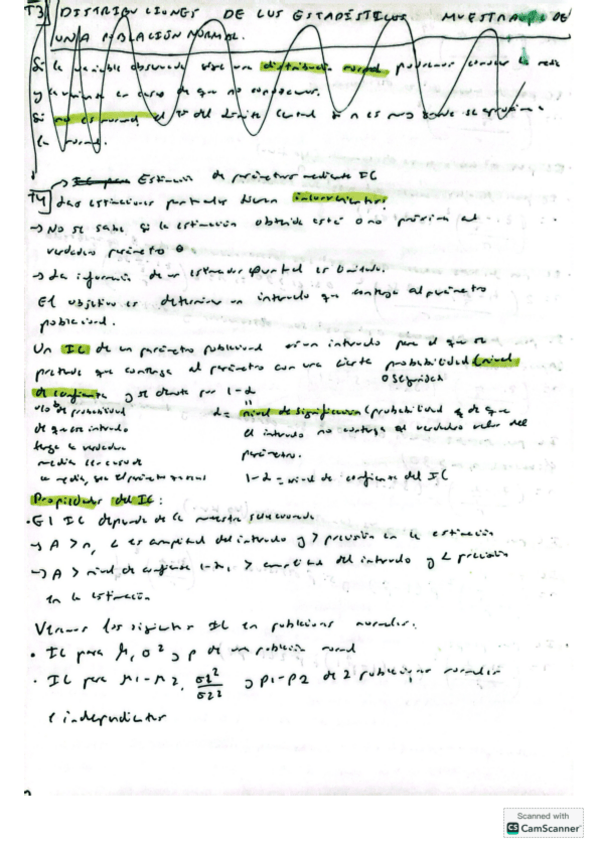 T3 DISTRIBUCIONES DE LOS ESTADÍSTICOS MUESTRALES DE
UNA POBLACIÓN NORMAL.
Si la variable observada sigue una distribución normal podremos conocer la media
y la varianza en caso de que no conozcamos.
Si no es normal, el Tº del Límite Central si n es muy grande se aproxima a
la normal.
Estimación de parámetros mediante IC
T4 Las estimaciones puntuales tienen inconvenientes:
→ No se sabe si la estimación obtenida está o no próxima al
verdadero parámetro θ
→ La información de un estimador puntual es limitada.
El objetivo es determinar un intervalo que contenga al parámetro
poblacional.
Un IC de un parámetro poblacional es un intervalo para el que se
pretende que contenga al parámetro con una cierta probabilidad (nivel
o seguridad
de confianza y se denota por 1-α
de probabilidad
α = nivel de significación (probabilidad de que
de que ese intervalo
el intervalo no contenga el verdadero valor del
tenga la verdadera
parámetro.
media
1-α = nivel de confianza del IC
Propiedades del IC:
• El IC depende de la muestra seleccionada
→ A > n, < es amplitud del intervalo y > precisión en la estimación
→ A > nivel de confianza 1-α, > amplitud del intervalo y < precisión
en la estimación
Veremos los siguientes IC en poblaciones normales:
• IC para μ, σ² y p de una población normal
• IC para μ1-μ2, σ1²/σ2² y p1-p2 de 2 poblaciones normales
e independientes
Scanned with
CS CamScanner